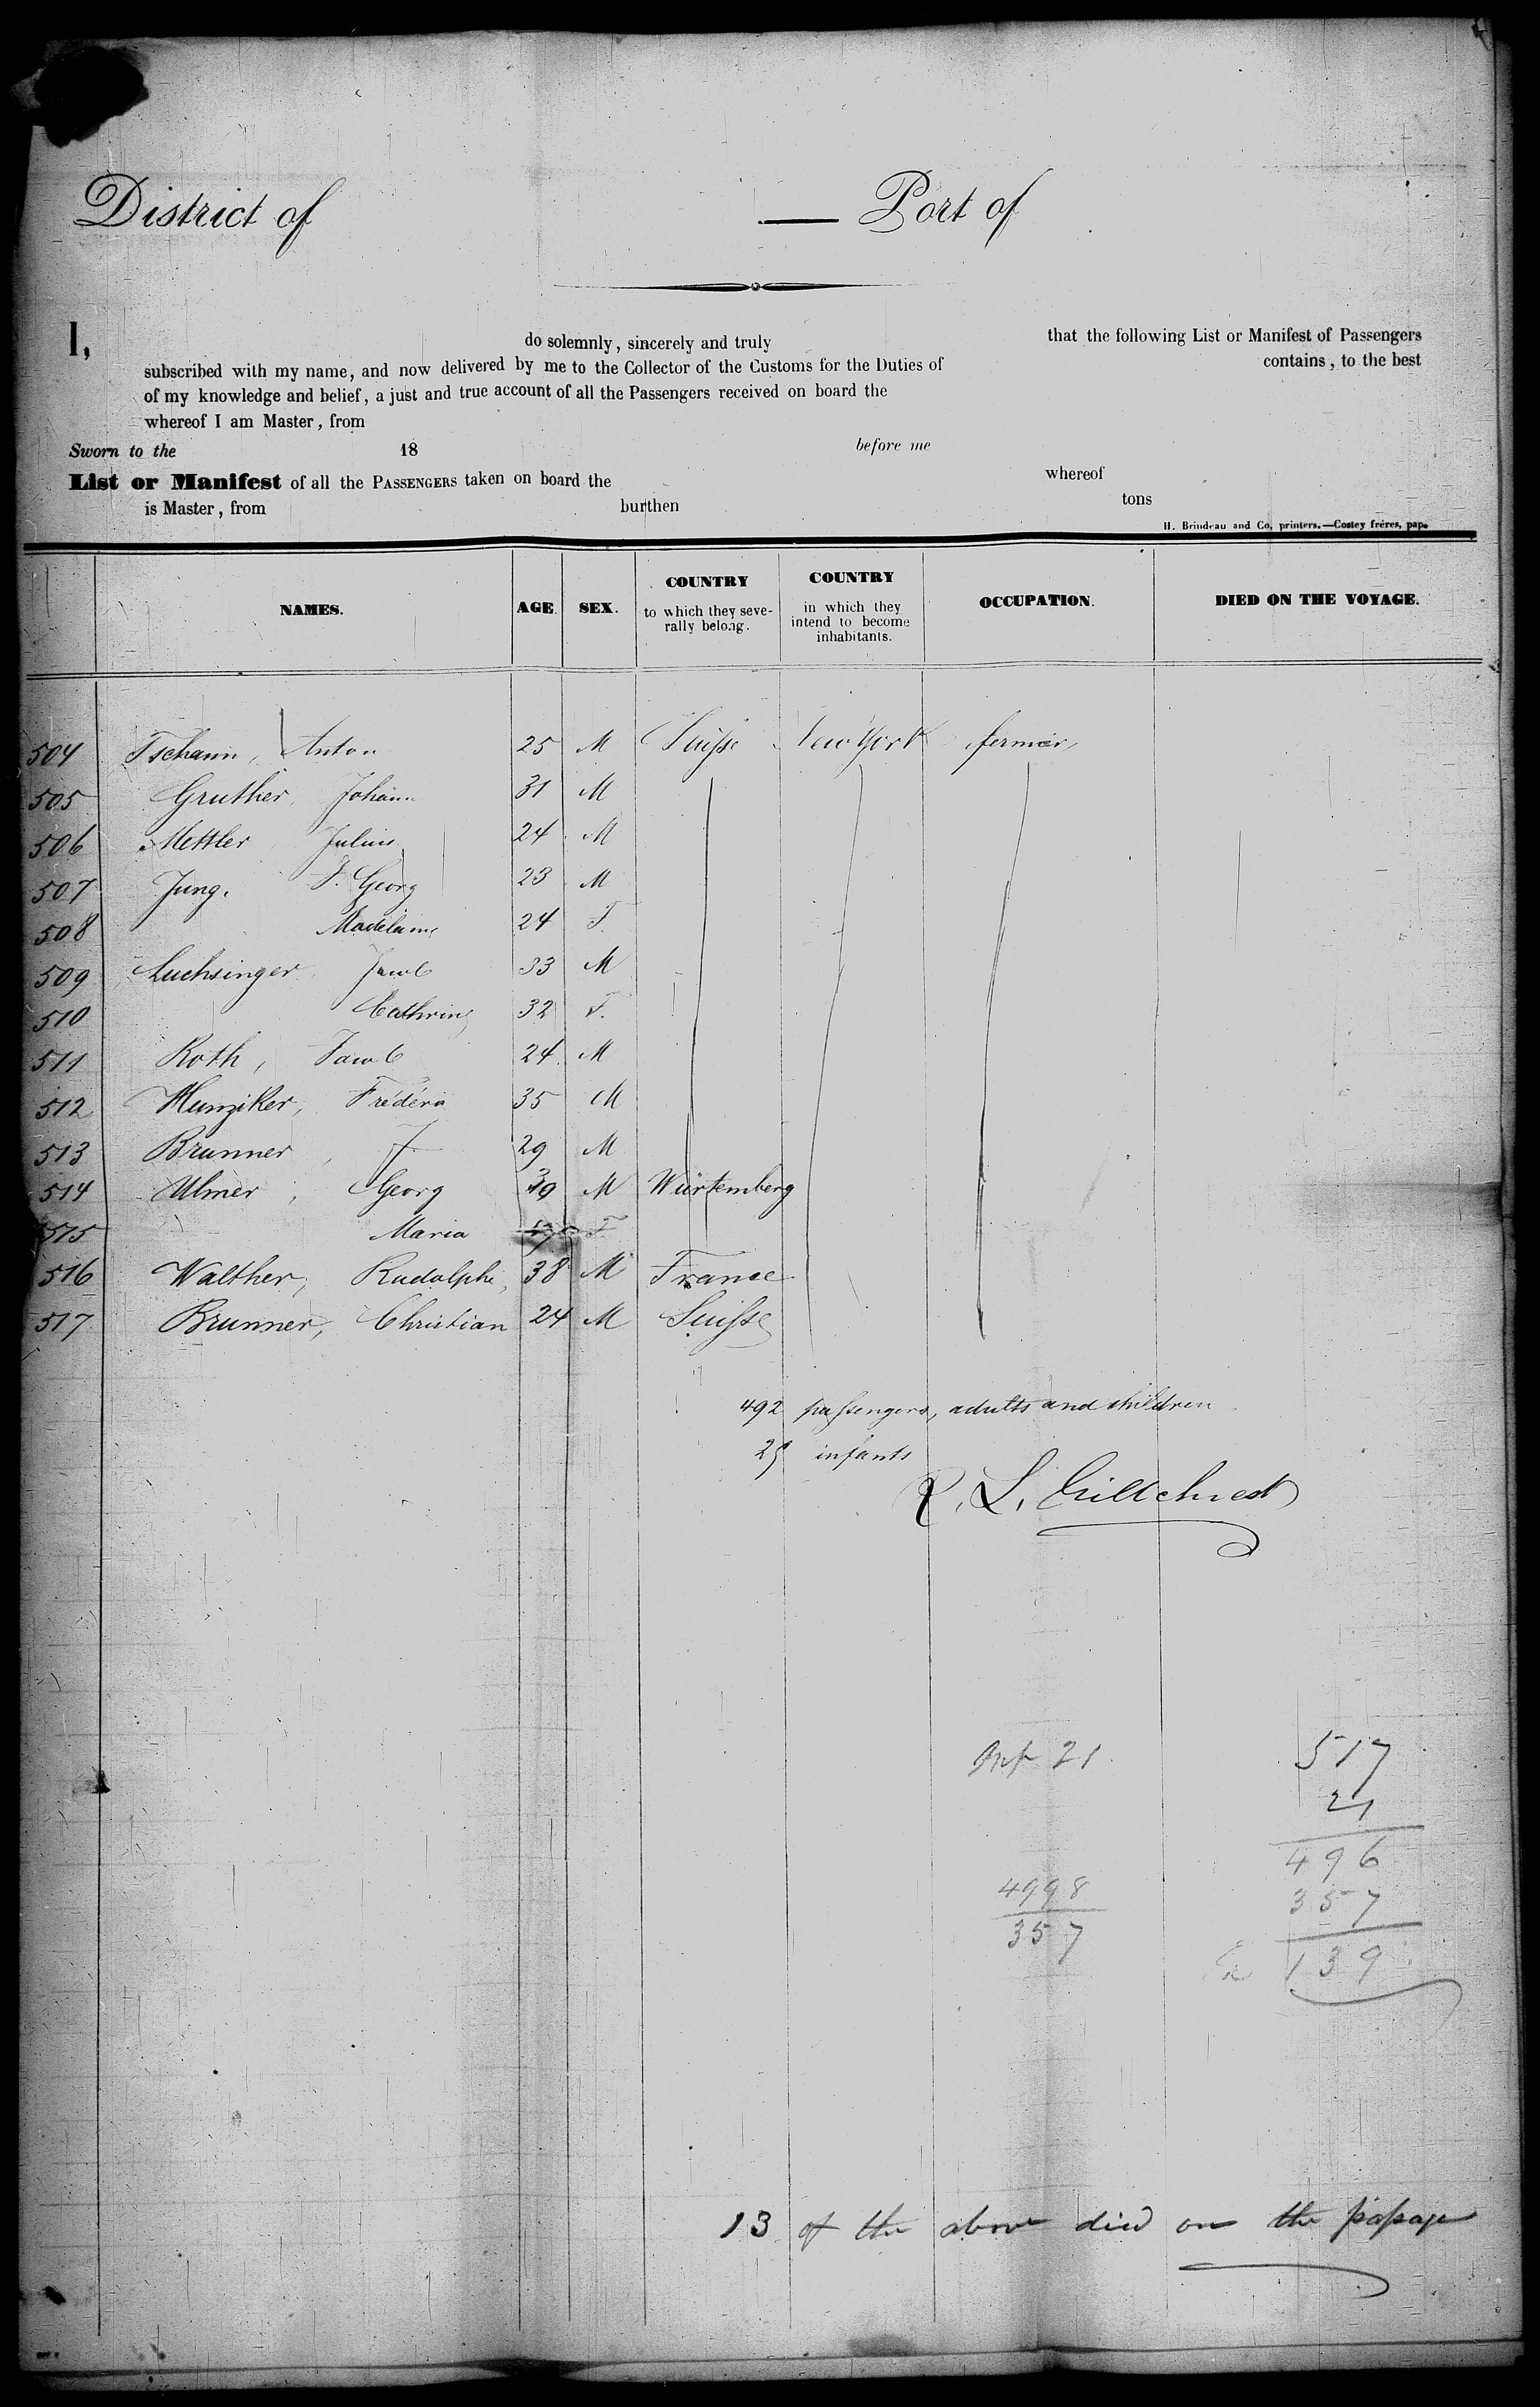 District of — Port of
I, do solemnly, sincerely and truly that the following List or Manifest of Passengers
subscribed with my name, and now delivered by me to the Collector of the Customs for the Duties of contains, to the best
of my knowledge and belief, a just and true account of all the Passengers received on board the
whereof I am Master, from
Sworn to the 18 before me
List or Manifest of all the PASSENGERS taken on board the whereof
is Master, from burthen tons
H. Brindeau and Co, printers.—Costey fréres, pap.
NAMES. AGE SEX. COUNTRY to which they seve- rally belong. COUNTRY in which they intend to become inhabitants. OCCUPATION. DIED ON THE VOYAGE.
504 Tschann, Anton 25 M Suisse New York fermier
505 Gruther, Johann 31 M
506 Mettler Julius 24 M
507 Jung, F. Georg 23 M
508 Madelaine 24 F
509 Luchsinger Jacob 33 M
510 Cathrine 32 F.
511 Roth, Jacob 24 M
512 Hunziker, Fréderic 35 M
513 Brunner, J 29 M
514 Ulmer, Georg 39 M Würtemberg
515 Maria F
516 Walther, Rudolphe, 38 M France
517 Brunner, Christian 24 M Suisse
492 passengers, adults and children
25 infants
R. L. Gillchrest
Inf 21 517
21
496
4998 357
357 139
13 of the above died on the passage